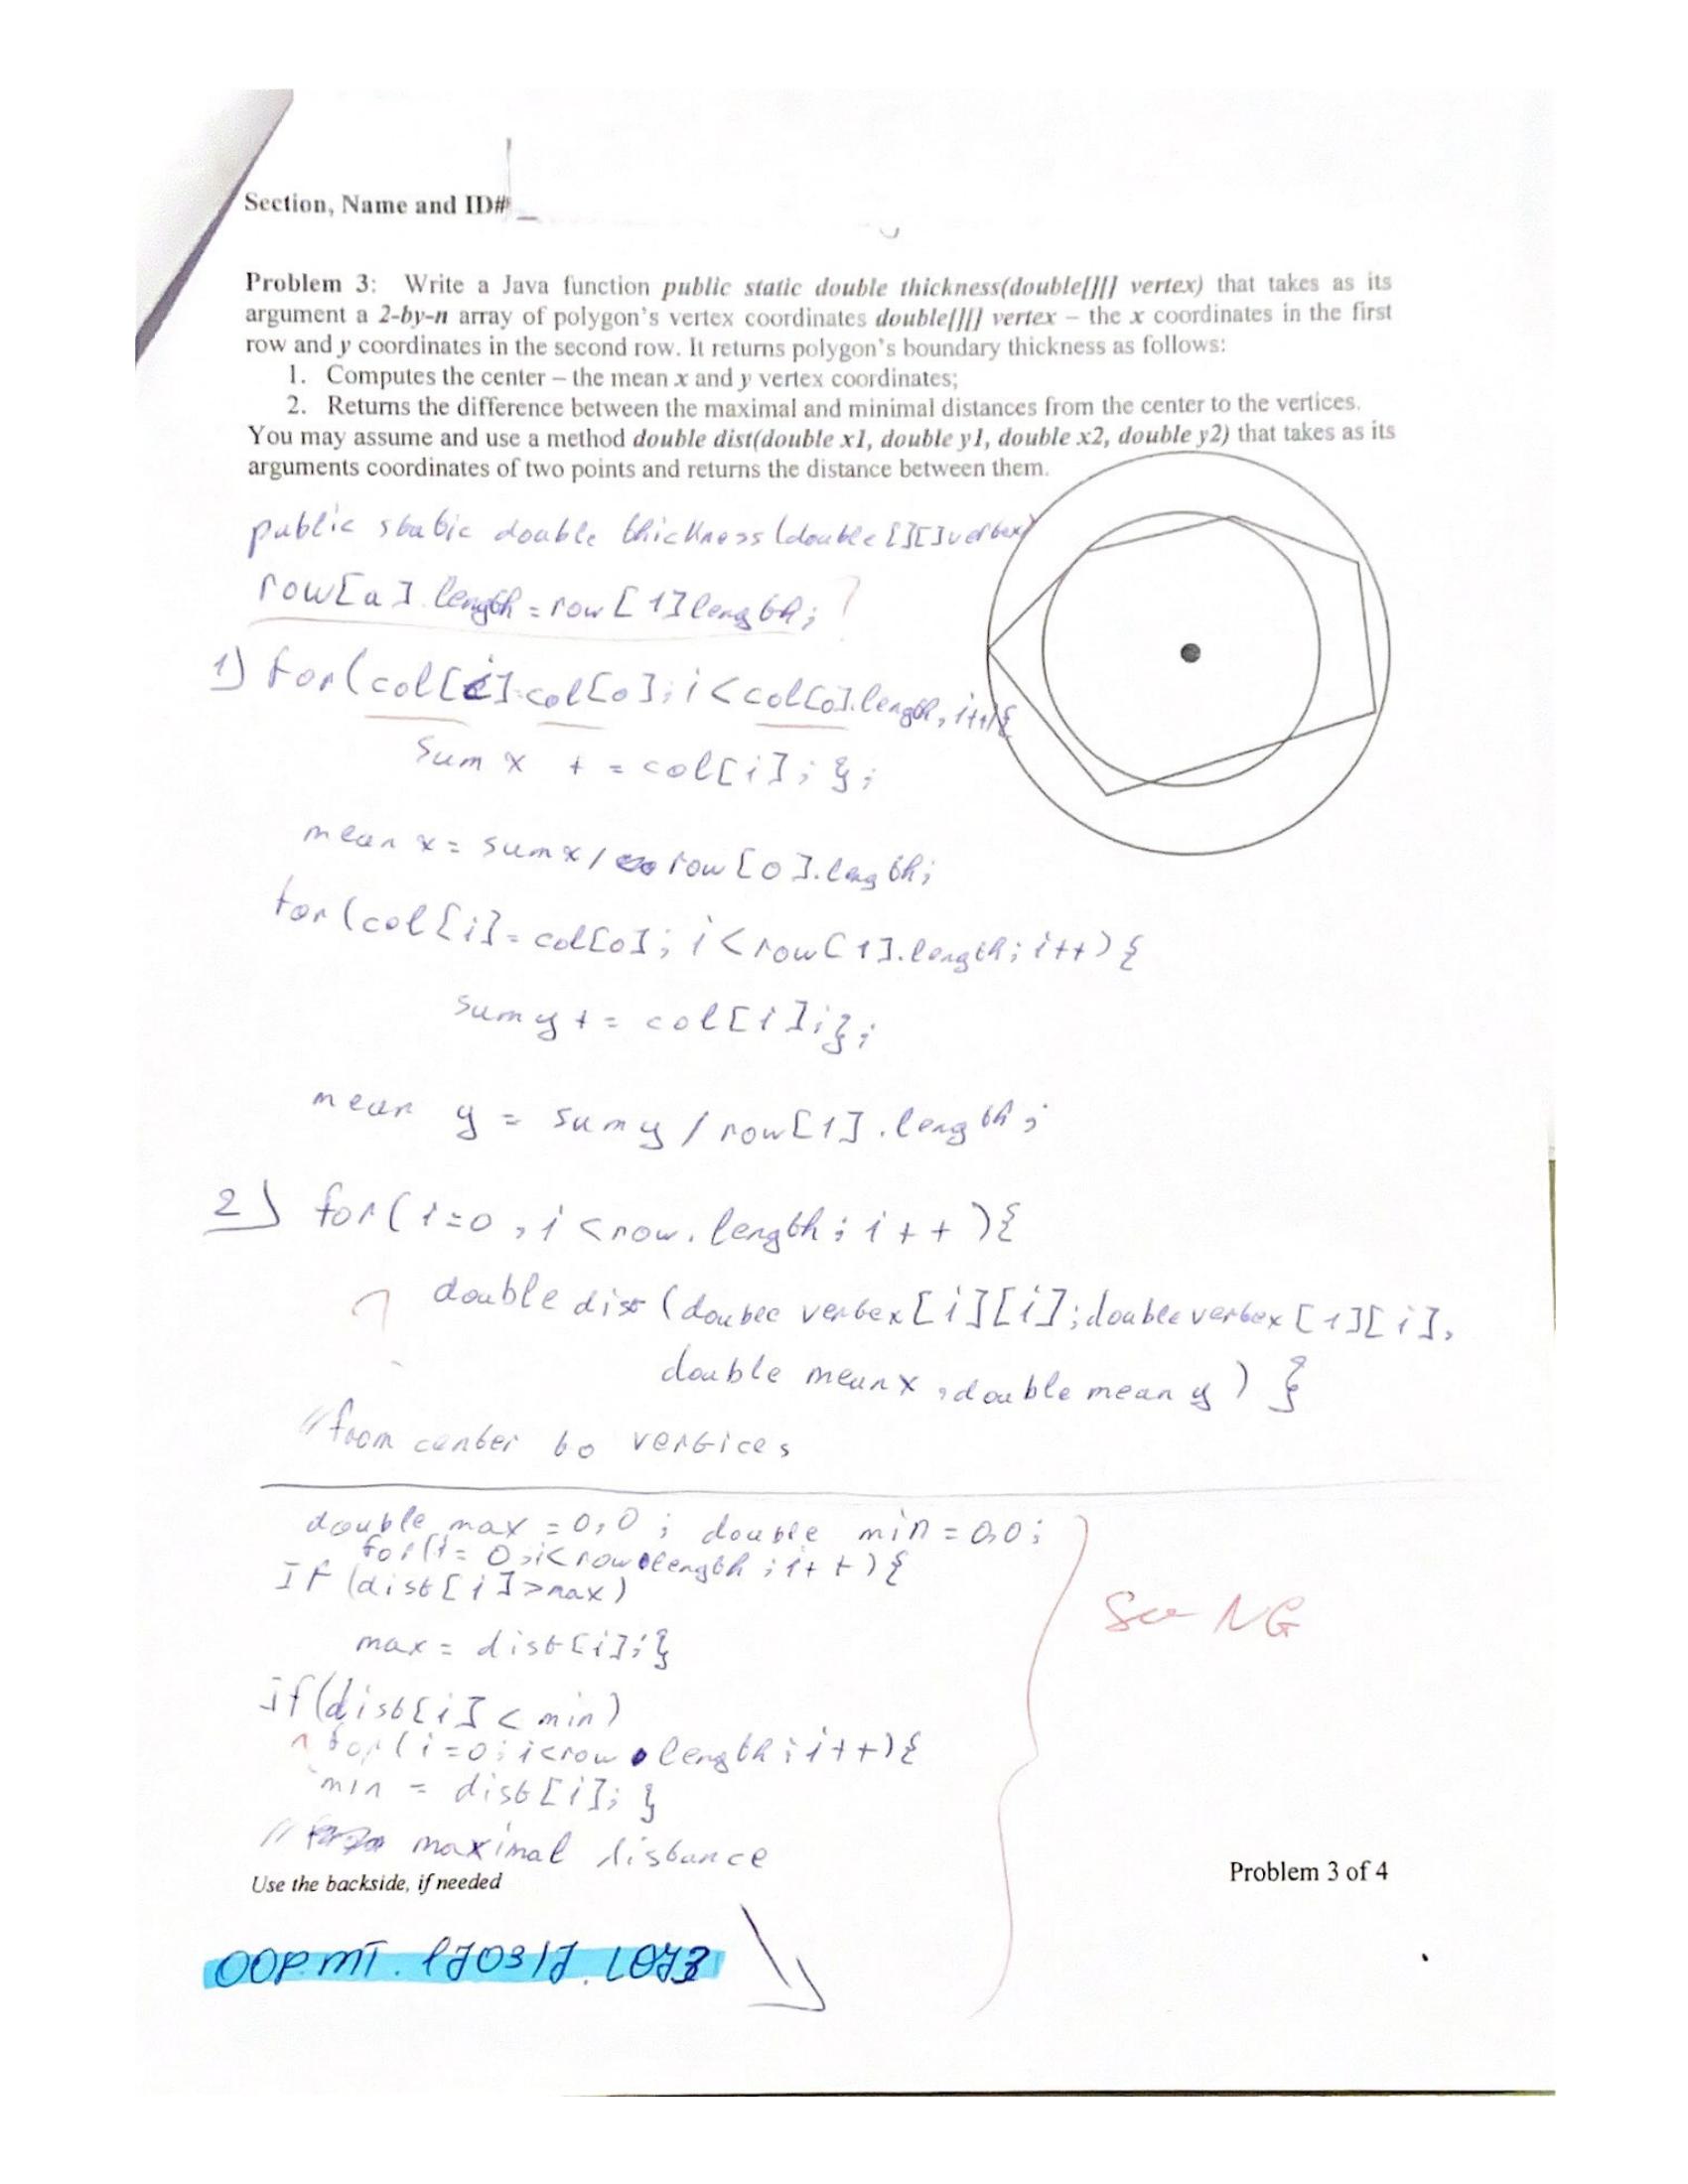 Section, Name and ID#
Problem 3: Write a Java function public static double thickness(double[][] vertex) that takes as its
argument a 2-by-n array of polygon's vertex coordinates double[][] vertex – the x coordinates in the first
row and y coordinates in the second row. It returns polygon's boundary thickness as follows:
1. Computes the center – the mean x and y vertex coordinates;
2. Returns the difference between the maximal and minimal distances from the center to the vertices.
You may assume and use a method double dist(double x1, double y1, double x2, double y2) that takes as its
arguments coordinates of two points and returns the distance between them.
public static double thickness (double [][] vertex)
row[a].length = row[1]length; ?
1) for(col[i]=col[0]; i<col[0].length, i++){
sum x += col[i]; };
mean x = sum x / row[0].length;
for(col[i]=col[0]; i<row[1].length; i++){
sum y += col[i]; };
mean y = sum y / row[1].length;
2) for(i=0, i<row.length; i++){
double dist (double vertex[i][i]; double vertex[1][i],
double mean x, double mean y) }
// from center to vertices
double max = 0,0; double min = 0,0;
for(i=0; i<row.length; i++){
If (dist[i]>max)
max = dist[i]; }
If (dist[i] < min)
for(i=0; i<row.length; i++){
min = dist[i]; }
// maximal distance
NG
Use the backside, if needed
Problem 3 of 4
OOP.MT.170317.L073